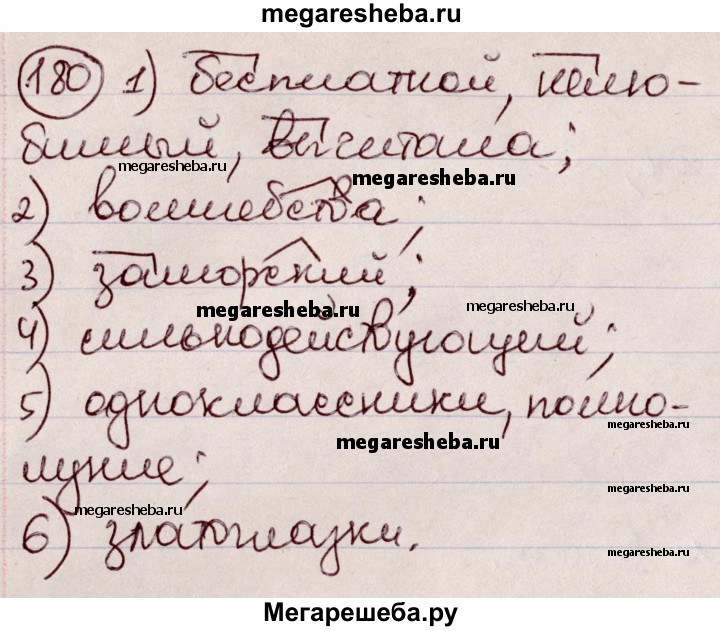 megaresheba.ru
180 1) бесплатной, нелю-
бимый, вычитала;
megaresheba.ru
megaresheba.ru
2) волшебства;
3) заморский;
megaresheba.ru
megaresheba.ru
4) сильнодействующий;
5) одноклассники, полно-
megaresheba.ru
megaresheba.ru
луние;
megaresheba.ru
megaresheba.ru
6) златоглазки.
megaresheba.ru
Мегарешеба.ру